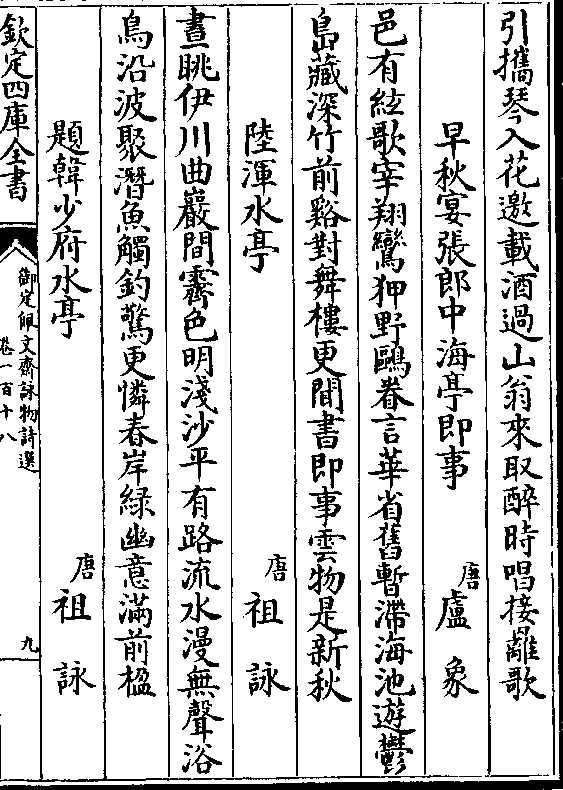 引攜琴入花邀載酒過山翁來取醉時唱接䍦歌
早秋宴張郎中海亭即事 唐 盧象
邑有絃歌宰翔鸞狎野鷗眷言華省舊暫滯海池遊鬱
島藏深竹前谿對舞樓更聞書即事雲物是新秋
陸渾水亭 唐 祖詠
晝眺伊川曲巖間霽色明淺沙平有路流水漫無聲浴
鳥沿波聚潛魚觸釣驚更憐春岸綠幽意滿前楹
題韓少府水亭 唐 祖詠
欽定四庫全書
御定佩文齋詠物詩選
卷一百十八
九